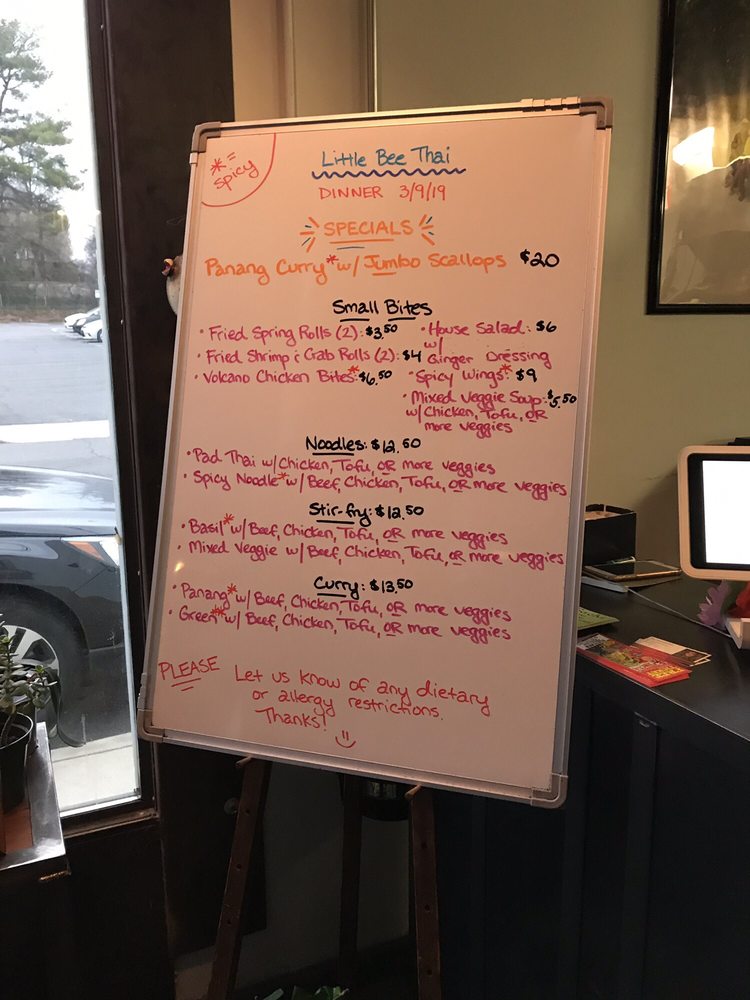 * =
spicy
Little Bee Thai
DINNER 3/9/19
SPECIALS
Panang Curry* w/ Jumbo Scallops $20
Small Bites
• Fried Spring Rolls (2): $3.50
• Fried Shrimp & Crab Rolls (2): $4
• Volcano Chicken Bites*: $6.50
• House Salad: $6
w/
Ginger Dressing
• Spicy Wings*: $9
• Mixed Veggie Soup: $5.50
w/ Chicken, Tofu, OR
more veggies
Noodles: $12.50
• Pad Thai w/ Chicken, Tofu, OR more veggies
• Spicy Noodle* w/ Beef, Chicken, Tofu, OR more veggies
Stir-fry: $12.50
• Basil* w/ Beef, Chicken, Tofu, OR more veggies
• Mixed Veggie w/ Beef, Chicken, Tofu, OR more veggies
Curry: $13.50
• Panang* w/ Beef, Chicken, Tofu, OR more veggies
• Green* w/ Beef, Chicken, Tofu, OR more veggies
PLEASE Let us know of any dietary
or allergy restrictions.
Thanks!